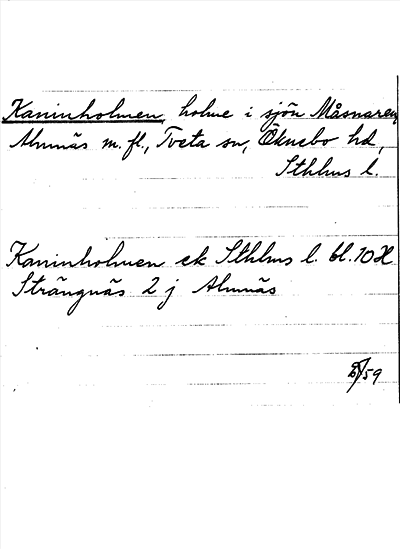 Kaninholmen, holme i sjön Måsnaren,
Almnäs m. fl., Tveta sn, Öknebo hd,
Sthlms l.
Kaninholmen ek Sthlms l. bl. 10 H
Strängnäs 2 j Almnäs
/59